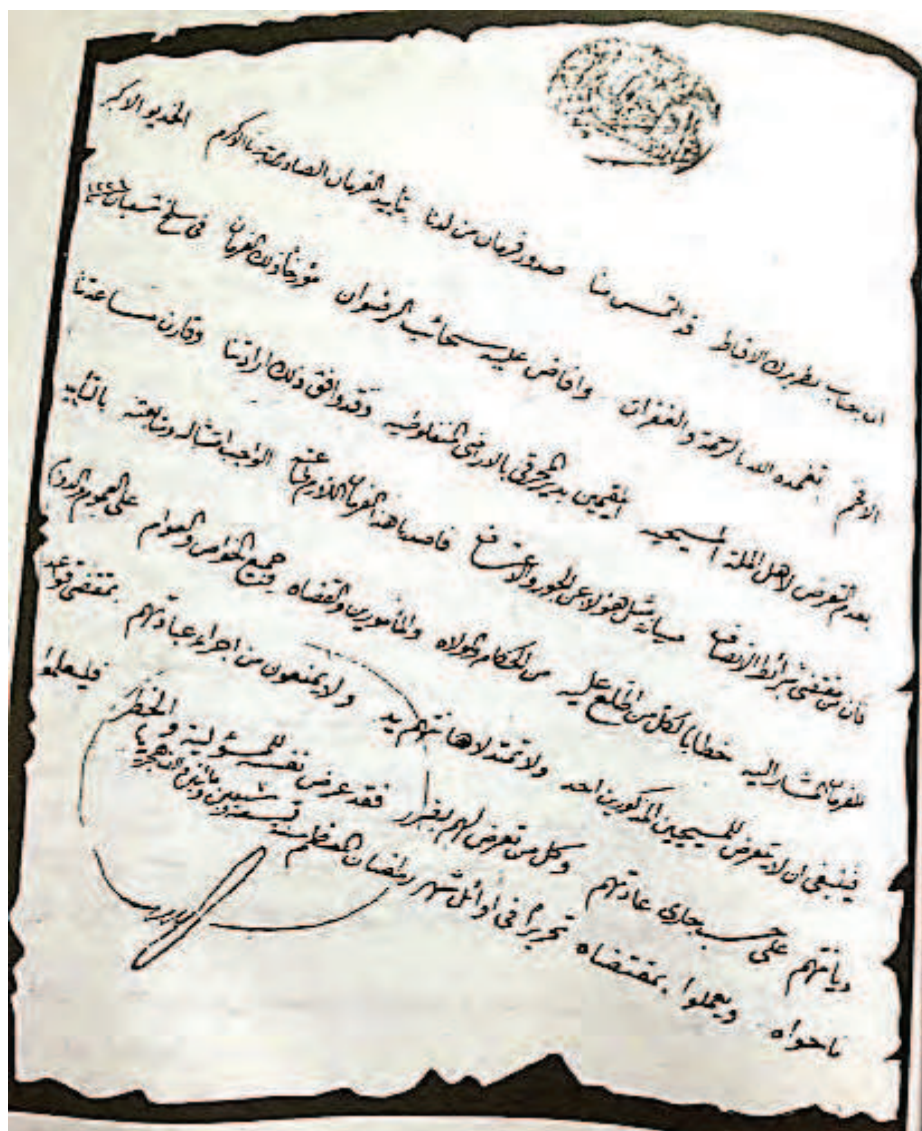 ان جناب بطريرك الاقباط قد التمس منا صدور فرمان من لدنا بتأييد الفرمان الصادر من الاكرم الخديو الاكبر
الافخم تغمده الله بالرحمة والغفران وافاض عليه سحائب الرضوان مؤرخا ذلك الفرمان فى سلخ شعبان
بعدم التعرض لاهل الملة المسيحيه المقيمين بدير المحرق بالاراضى المنفلوطيه وقد وافق ذلك ارادتنا وقارن مساعدتنا
فان من مقتضى شرائط الانصاف صيانة مثل هؤلاء عن الجور والاعتساف فاصدرنا هذا الفرمان اللازم الواجب امتثاله ومتابعته بالتأييد
للفرمان المشار اليه خطابا لكل من اطلع عليه من الحكام والولاه والمأمورين والقضاه وجميع الخواص والعوام على العموم والدوام
فينبغى ان لا يتعرض للمسيحيين المذكورين احد ولا تمتد لاهانتهم يد ولا يمنعون من اجراء عبادتهم بمقتضى قواعد
ديانتهم على حسب جارى عادتهم وكل من تعرض لهم بضرر فقد عرض نفسه للمسئولية والخطر فليعلموا
ما حواه ويعملوا بمقتضاه تحريرا فى اوائل شهر رمضان المعظم سنة